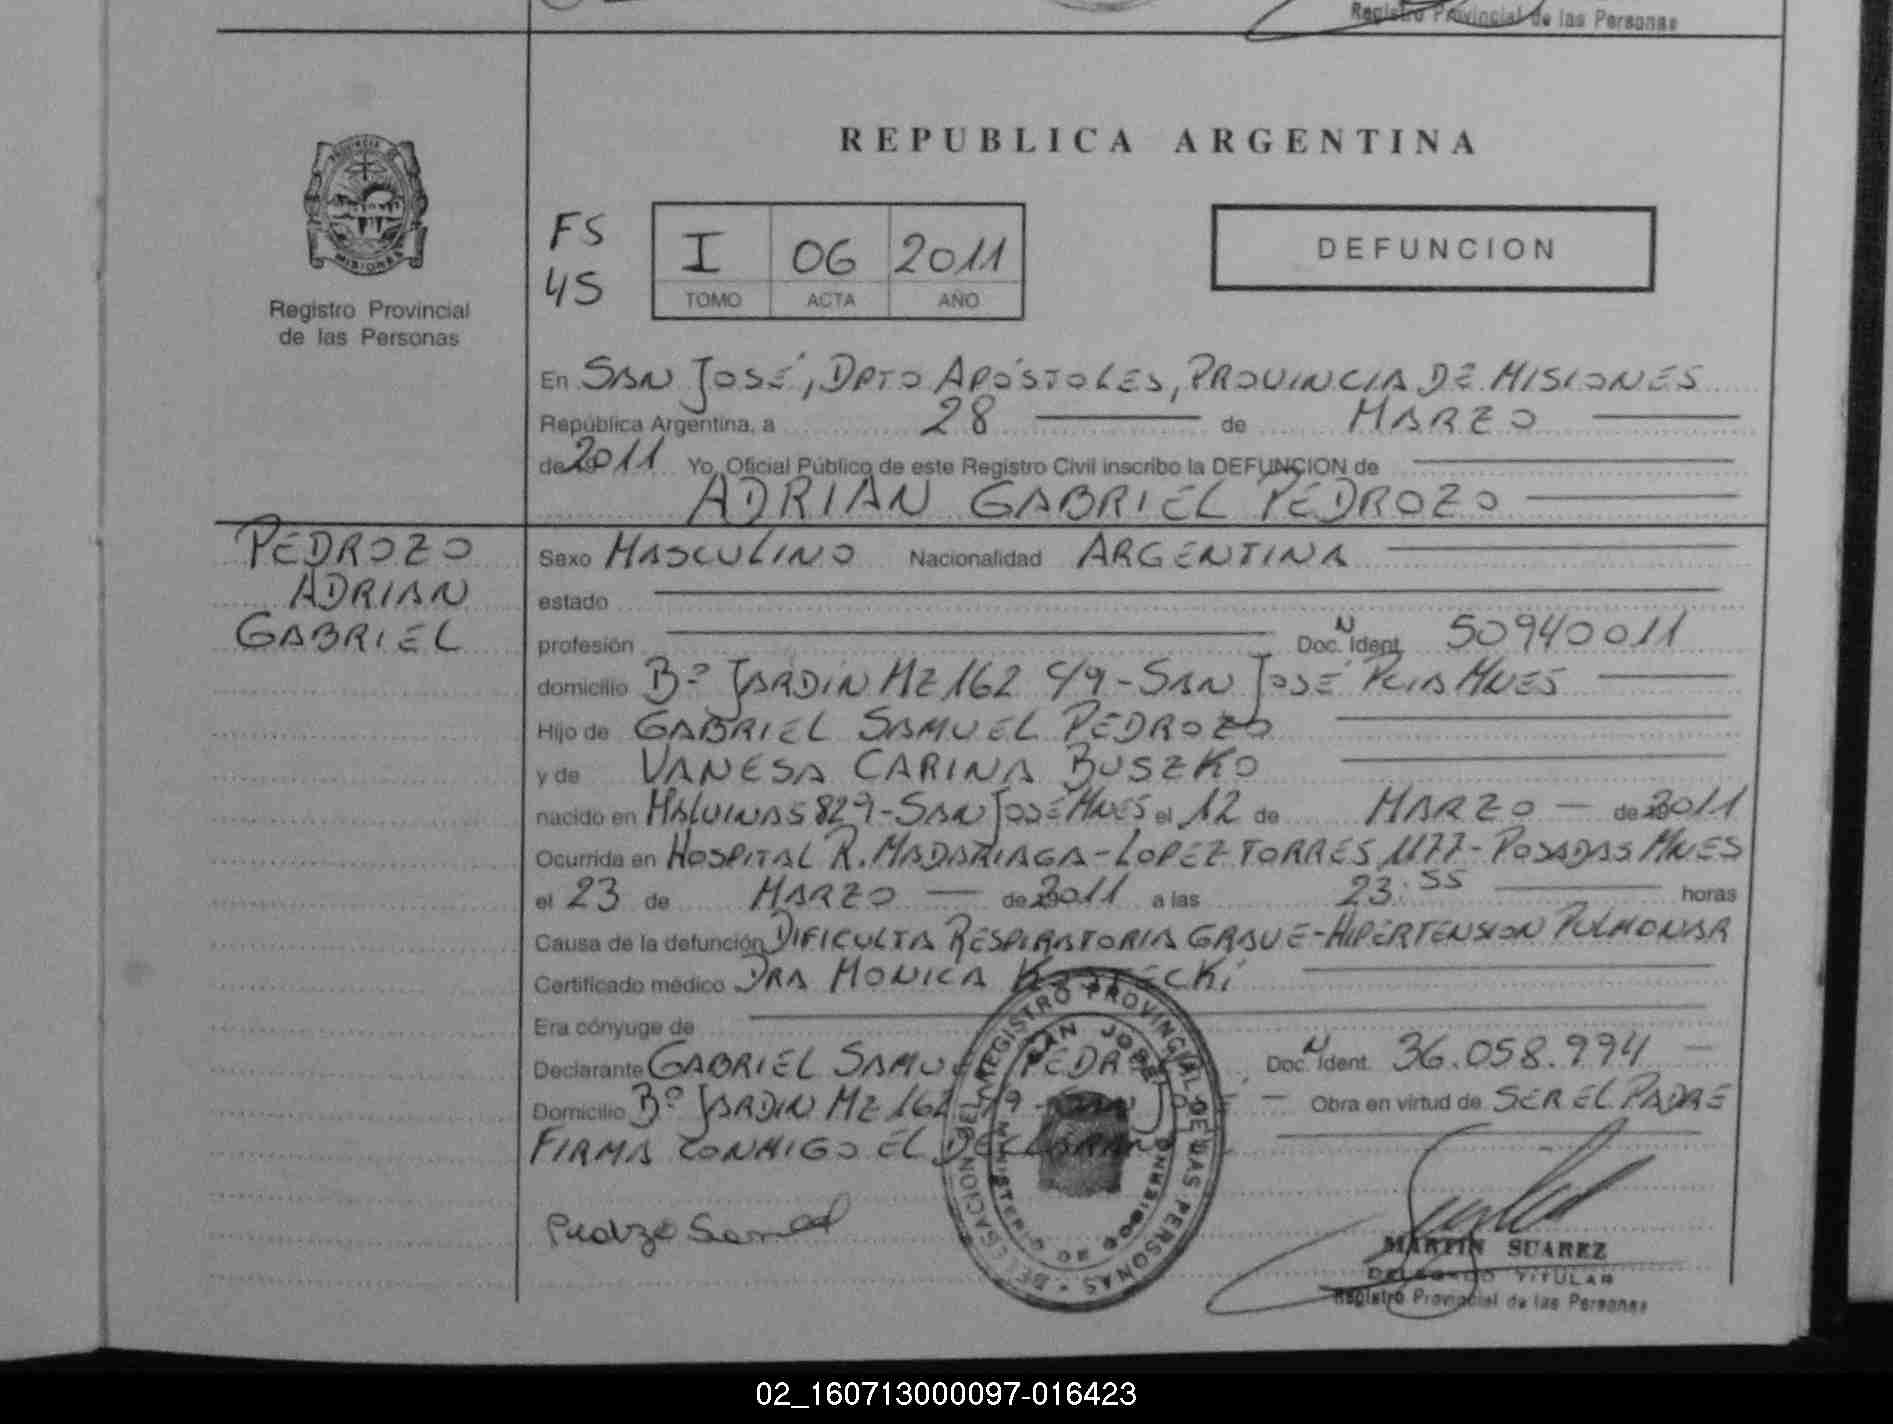 Registro Provincial de las Personas
REPUBLICA ARGENTINA
PROVINCIA DE
MISIONES
Registro Provincial
de las Personas
FS
45
I 06 2011
TOMO ACTA AÑO
DEFUNCION
En SAN JOSÉ, DPTO APÓSTOLES, PROVINCIA DE MISIONES
República Argentina, a 28 de MARZO
de 2011 Yo, Oficial Público de este Registro Civil inscribo la DEFUNCION de
ADRIAN GABRIEL PEDROZO
PEDROZO
ADRIAN
GABRIEL
Sexo MASCULINO Nacionalidad ARGENTINA
estado
profesión Doc. N Ident. 50940011
domicilio Bº JARDIN MZ 162 C/9 - SAN JOSÉ PCIA MNES
Hijo de GABRIEL SAMUEL PEDROZO
y de VANESA CARINA BUSZKO
nacido en MALVINAS 829 - SAN JOSÉ MNES el 12 de MARZO de 2011
Ocurrida en HOSPITAL R. MADARIAGA - LOPEZ TORRES 1177 - POSADAS MNES
el 23 de MARZO de 2011 a las 23:55 horas
Causa de la defunción DIFICULTA RESPIRATORIA GRAVE - HIPERTENSION PULMONAR
Certificado médico DRA MONICA
Era cónyuge de
Declarante GABRIEL SAMUEL PEDROZO Doc. N Ident. 36.058.994
Domicilio Bº JARDIN MZ 162 C/9 - Obra en virtud de SER EL PADRE
FIRMA CONMIGO EL DECLARANTE
DELEGACION DEL REGISTRO PROVINCIAL DE LAS PERSONAS
SAN JOSE
MINISTERIO DE GOBIERNO
MARTIN SUAREZ
DELEGADO TITULAR
Registro Provincial de las Personas
02_160713000097-016423